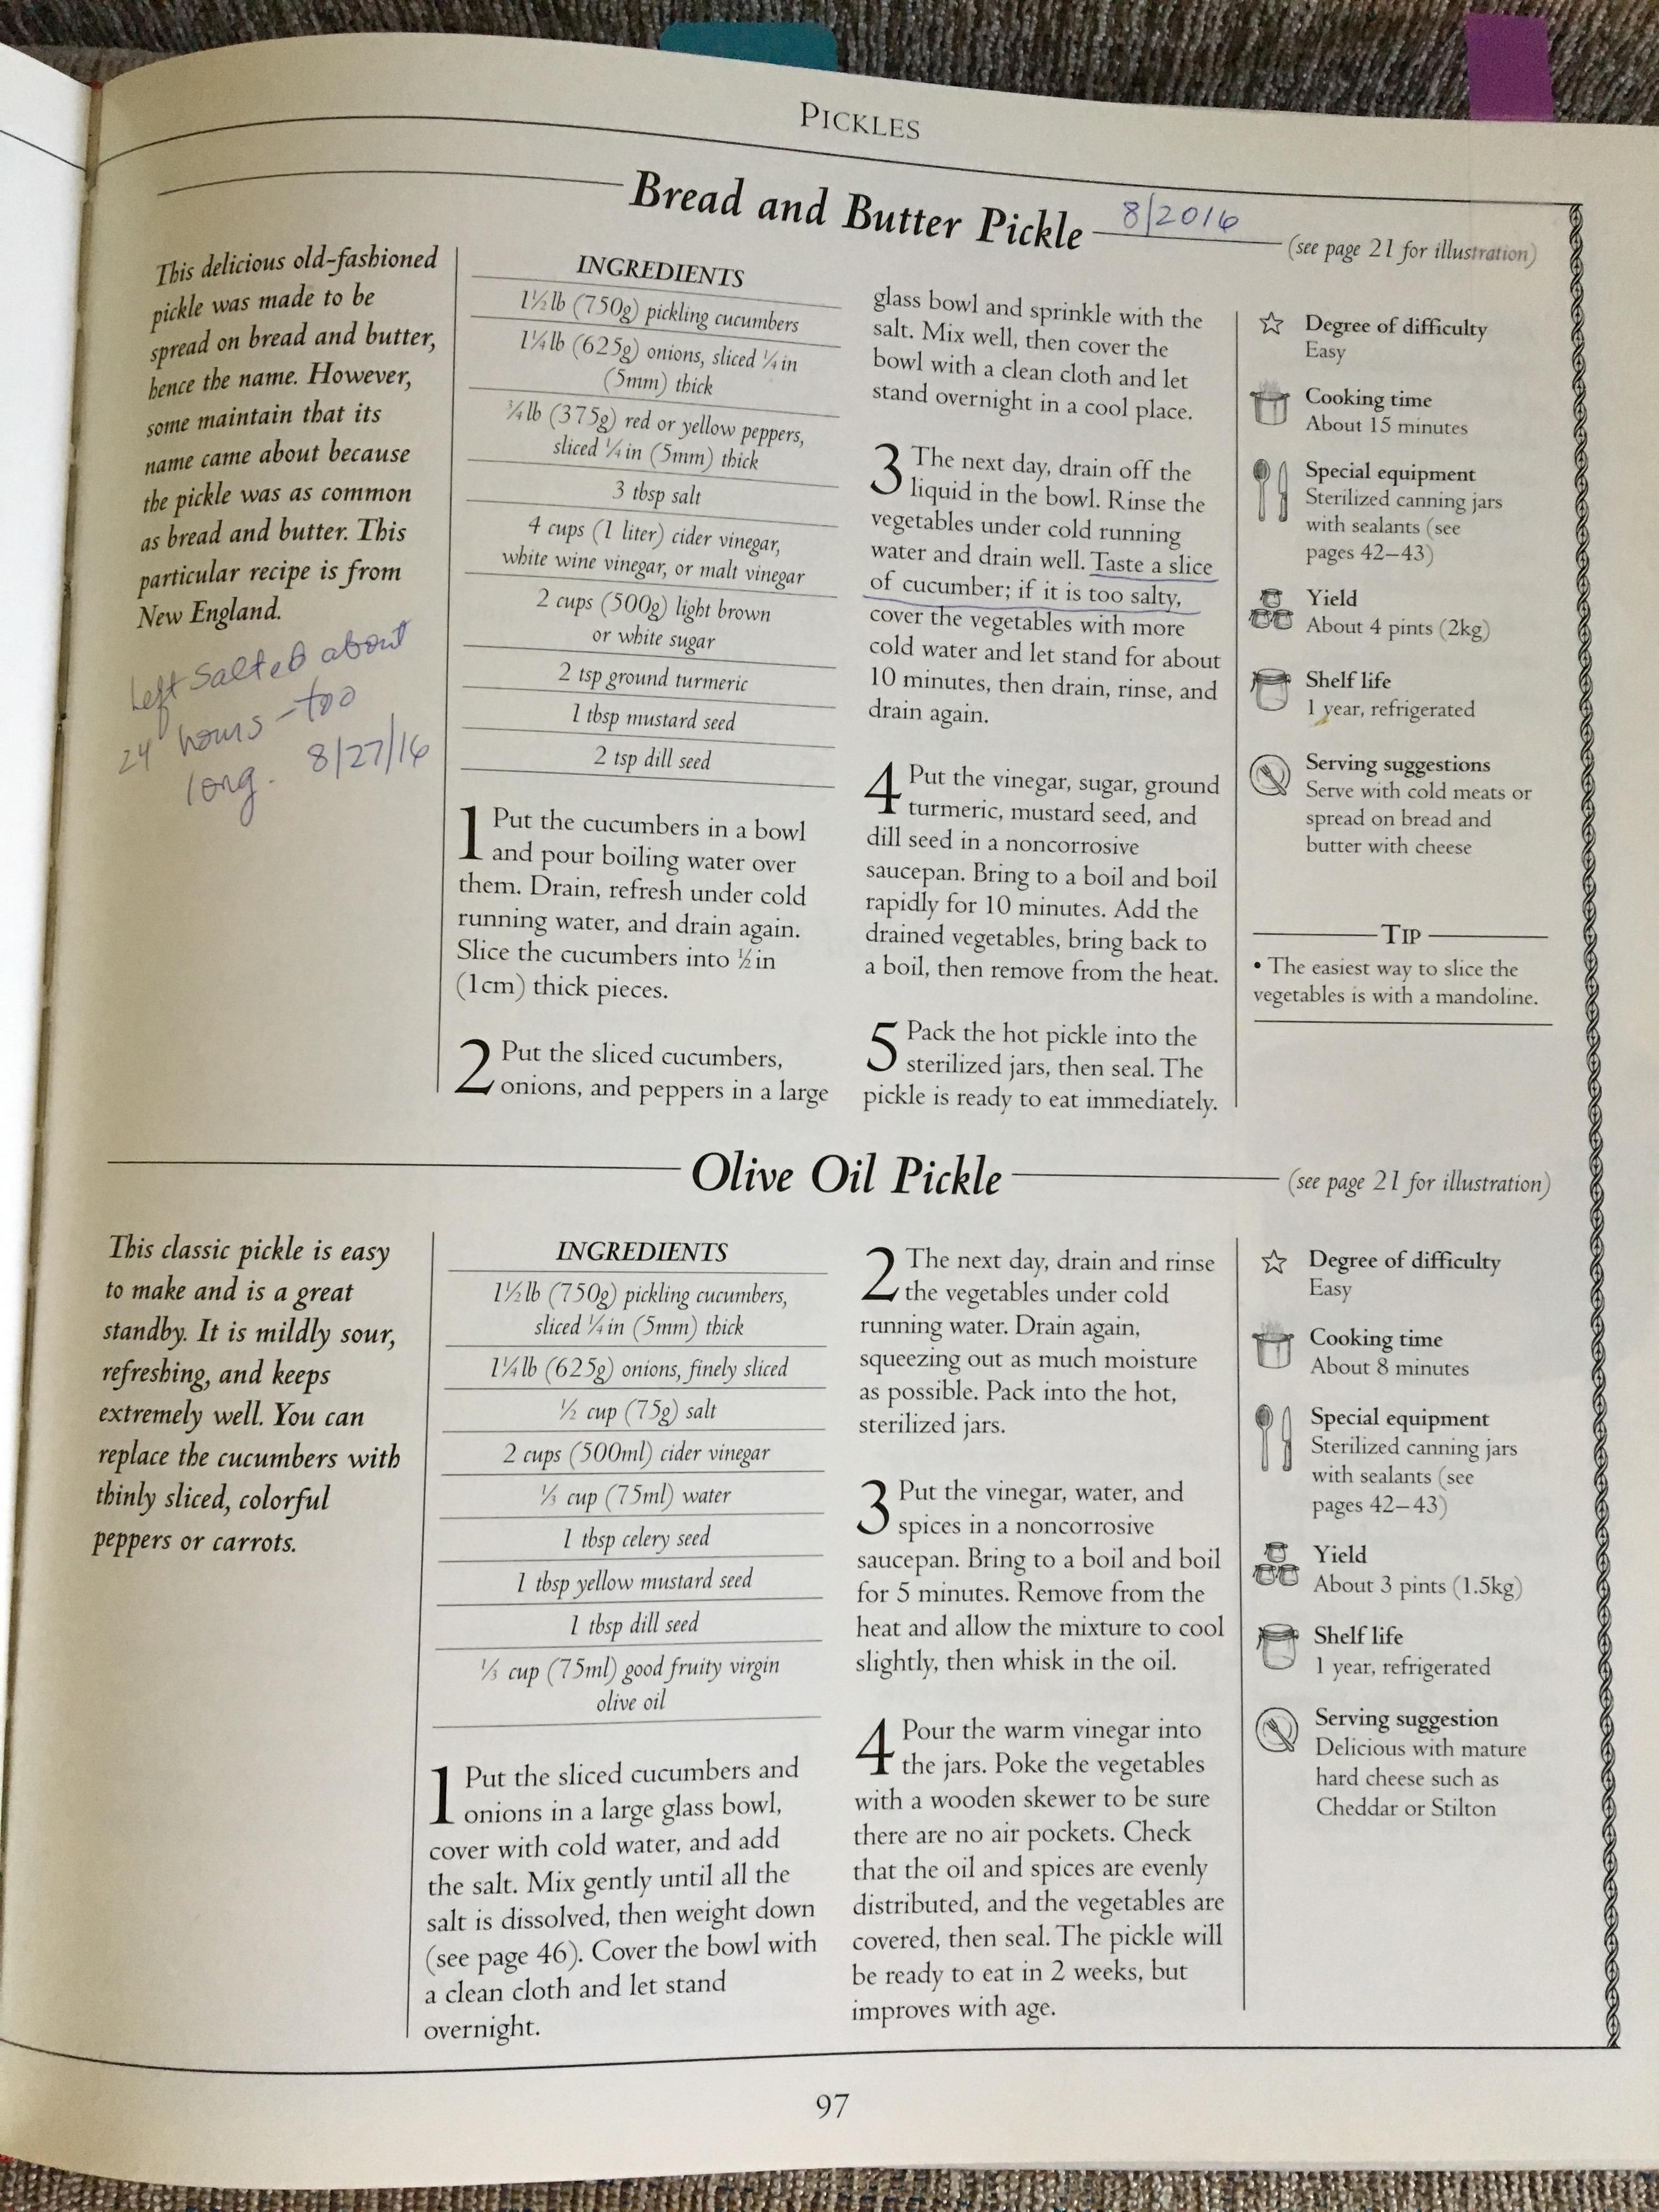 PICKLES
Bread and Butter Pickle
8/2016
(see page 21 for illustration)
This delicious old-fashioned
pickle was made to be
spread on bread and butter,
hence the name. However,
some maintain that its
name came about because
the pickle was as common
as bread and butter. This
particular recipe is from
New England.
Left salted about
24 hours - too
long. 8/27/16
INGREDIENTS
1½lb (750g) pickling cucumbers
1¼lb (625g) onions, sliced ¼in
(5mm) thick
¾lb (375g) red or yellow peppers,
sliced ¼in (5mm) thick
3 tbsp salt
4 cups (1 liter) cider vinegar,
white wine vinegar, or malt vinegar
2 cups (500g) light brown
or white sugar
2 tsp ground turmeric
1 tbsp mustard seed
2 tsp dill seed
1 Put the cucumbers in a bowl
and pour boiling water over
them. Drain, refresh under cold
running water, and drain again.
Slice the cucumbers into ½in
(1cm) thick pieces.
2 Put the sliced cucumbers,
onions, and peppers in a large
glass bowl and sprinkle with the
salt. Mix well, then cover the
bowl with a clean cloth and let
stand overnight in a cool place.
3 The next day, drain off the
liquid in the bowl. Rinse the
vegetables under cold running
water and drain well. Taste a slice
of cucumber; if it is too salty,
cover the vegetables with more
cold water and let stand for about
10 minutes, then drain, rinse, and
drain again.
4 Put the vinegar, sugar, ground
turmeric, mustard seed, and
dill seed in a noncorrosive
saucepan. Bring to a boil and boil
rapidly for 10 minutes. Add the
drained vegetables, bring back to
a boil, then remove from the heat.
5 Pack the hot pickle into the
sterilized jars, then seal. The
pickle is ready to eat immediately.
Degree of difficulty
Easy
Cooking time
About 15 minutes
Special equipment
Sterilized canning jars
with sealants (see
pages 42–43)
Yield
About 4 pints (2kg)
Shelf life
1 year, refrigerated
Serving suggestions
Serve with cold meats or
spread on bread and
butter with cheese
TIP
• The easiest way to slice the
vegetables is with a mandoline.
Olive Oil Pickle
(see page 21 for illustration)
This classic pickle is easy
to make and is a great
standby. It is mildly sour,
refreshing, and keeps
extremely well. You can
replace the cucumbers with
thinly sliced, colorful
peppers or carrots.
INGREDIENTS
1½lb (750g) pickling cucumbers,
sliced ¼in (5mm) thick
1¼lb (625g) onions, finely sliced
½ cup (75g) salt
2 cups (500ml) cider vinegar
⅓ cup (75ml) water
1 tbsp celery seed
1 tbsp yellow mustard seed
1 tbsp dill seed
⅓ cup (75ml) good fruity virgin
olive oil
1 Put the sliced cucumbers and
onions in a large glass bowl,
cover with cold water, and add
the salt. Mix gently until all the
salt is dissolved, then weight down
(see page 46). Cover the bowl with
a clean cloth and let stand
overnight.
2 The next day, drain and rinse
the vegetables under cold
running water. Drain again,
squeezing out as much moisture
as possible. Pack into the hot,
sterilized jars.
3 Put the vinegar, water, and
spices in a noncorrosive
saucepan. Bring to a boil and boil
for 5 minutes. Remove from the
heat and allow the mixture to cool
slightly, then whisk in the oil.
4 Pour the warm vinegar into
the jars. Poke the vegetables
with a wooden skewer to be sure
there are no air pockets. Check
that the oil and spices are evenly
distributed, and the vegetables are
covered, then seal. The pickle will
be ready to eat in 2 weeks, but
improves with age.
Degree of difficulty
Easy
Cooking time
About 8 minutes
Special equipment
Sterilized canning jars
with sealants (see
pages 42–43)
Yield
About 3 pints (1.5kg)
Shelf life
1 year, refrigerated
Serving suggestion
Delicious with mature
hard cheese such as
Cheddar or Stilton
97